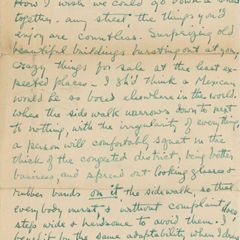 How I wish we could go down a street
together, any street, the things you'd
enjoy are countless. Surprising old
beautiful buildings bursting out at you,
crazy things for sale at the least ex-
pected places — I sh'd think a Mexican
would be so bored elsewhere in the world.
Where the sidewalk narrows down to next
to nothing, with the irregularity of everything
a person will comfortably squat in the
thick of the congested district, being better
business, and spread out looking glasses &
rubber bands on it, the sidewalk, so that
everybody must, & without complaint, does
steps wide & handsome to avoid them. I
by the same adaptability when I